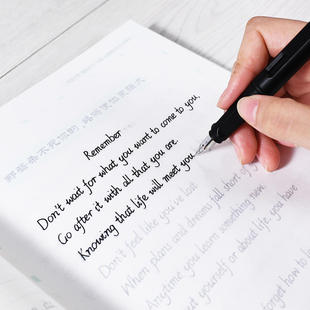 Remember
Don't wait for what you want to come to you.
Go after it with all that you are.
Knowing that life will meet you
Don't feel like you've lost
When plans and dreams fall short of
Anytime you learn something new
yourself or about life you have
forget how to